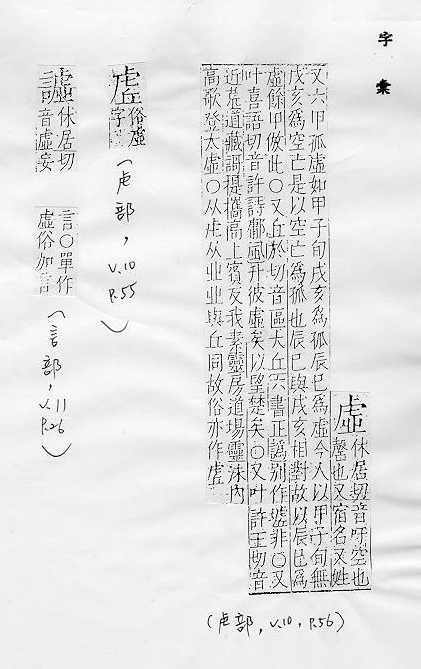 字彙
虛
休居切音吁空也
罄也又宿名又姓
又六甲孤虛如甲子旬戌亥為孤辰巳為虛今人以甲子旬無
戌亥為空亡是以空亡為孤也辰巳與戌亥相對故以辰巳為
虛餘甲倣此○又丘於切音區大丘六書正譌別作墟非○又
叶喜語切音許詩鄘風升彼虛矣以望楚矣○又叶許王切音
近荒道藏謌提攜高上賓友我素靈房道場靈沬內
高歌登太虛○从虍从业业與丘同故俗亦作虗
(虍部, v.10, P.56)
虗
俗虛
字
(虍部, v.10 P.55)
譃
休居切
音虛妄
言○單作
虛俗加言
(言部, v.11 P.26)